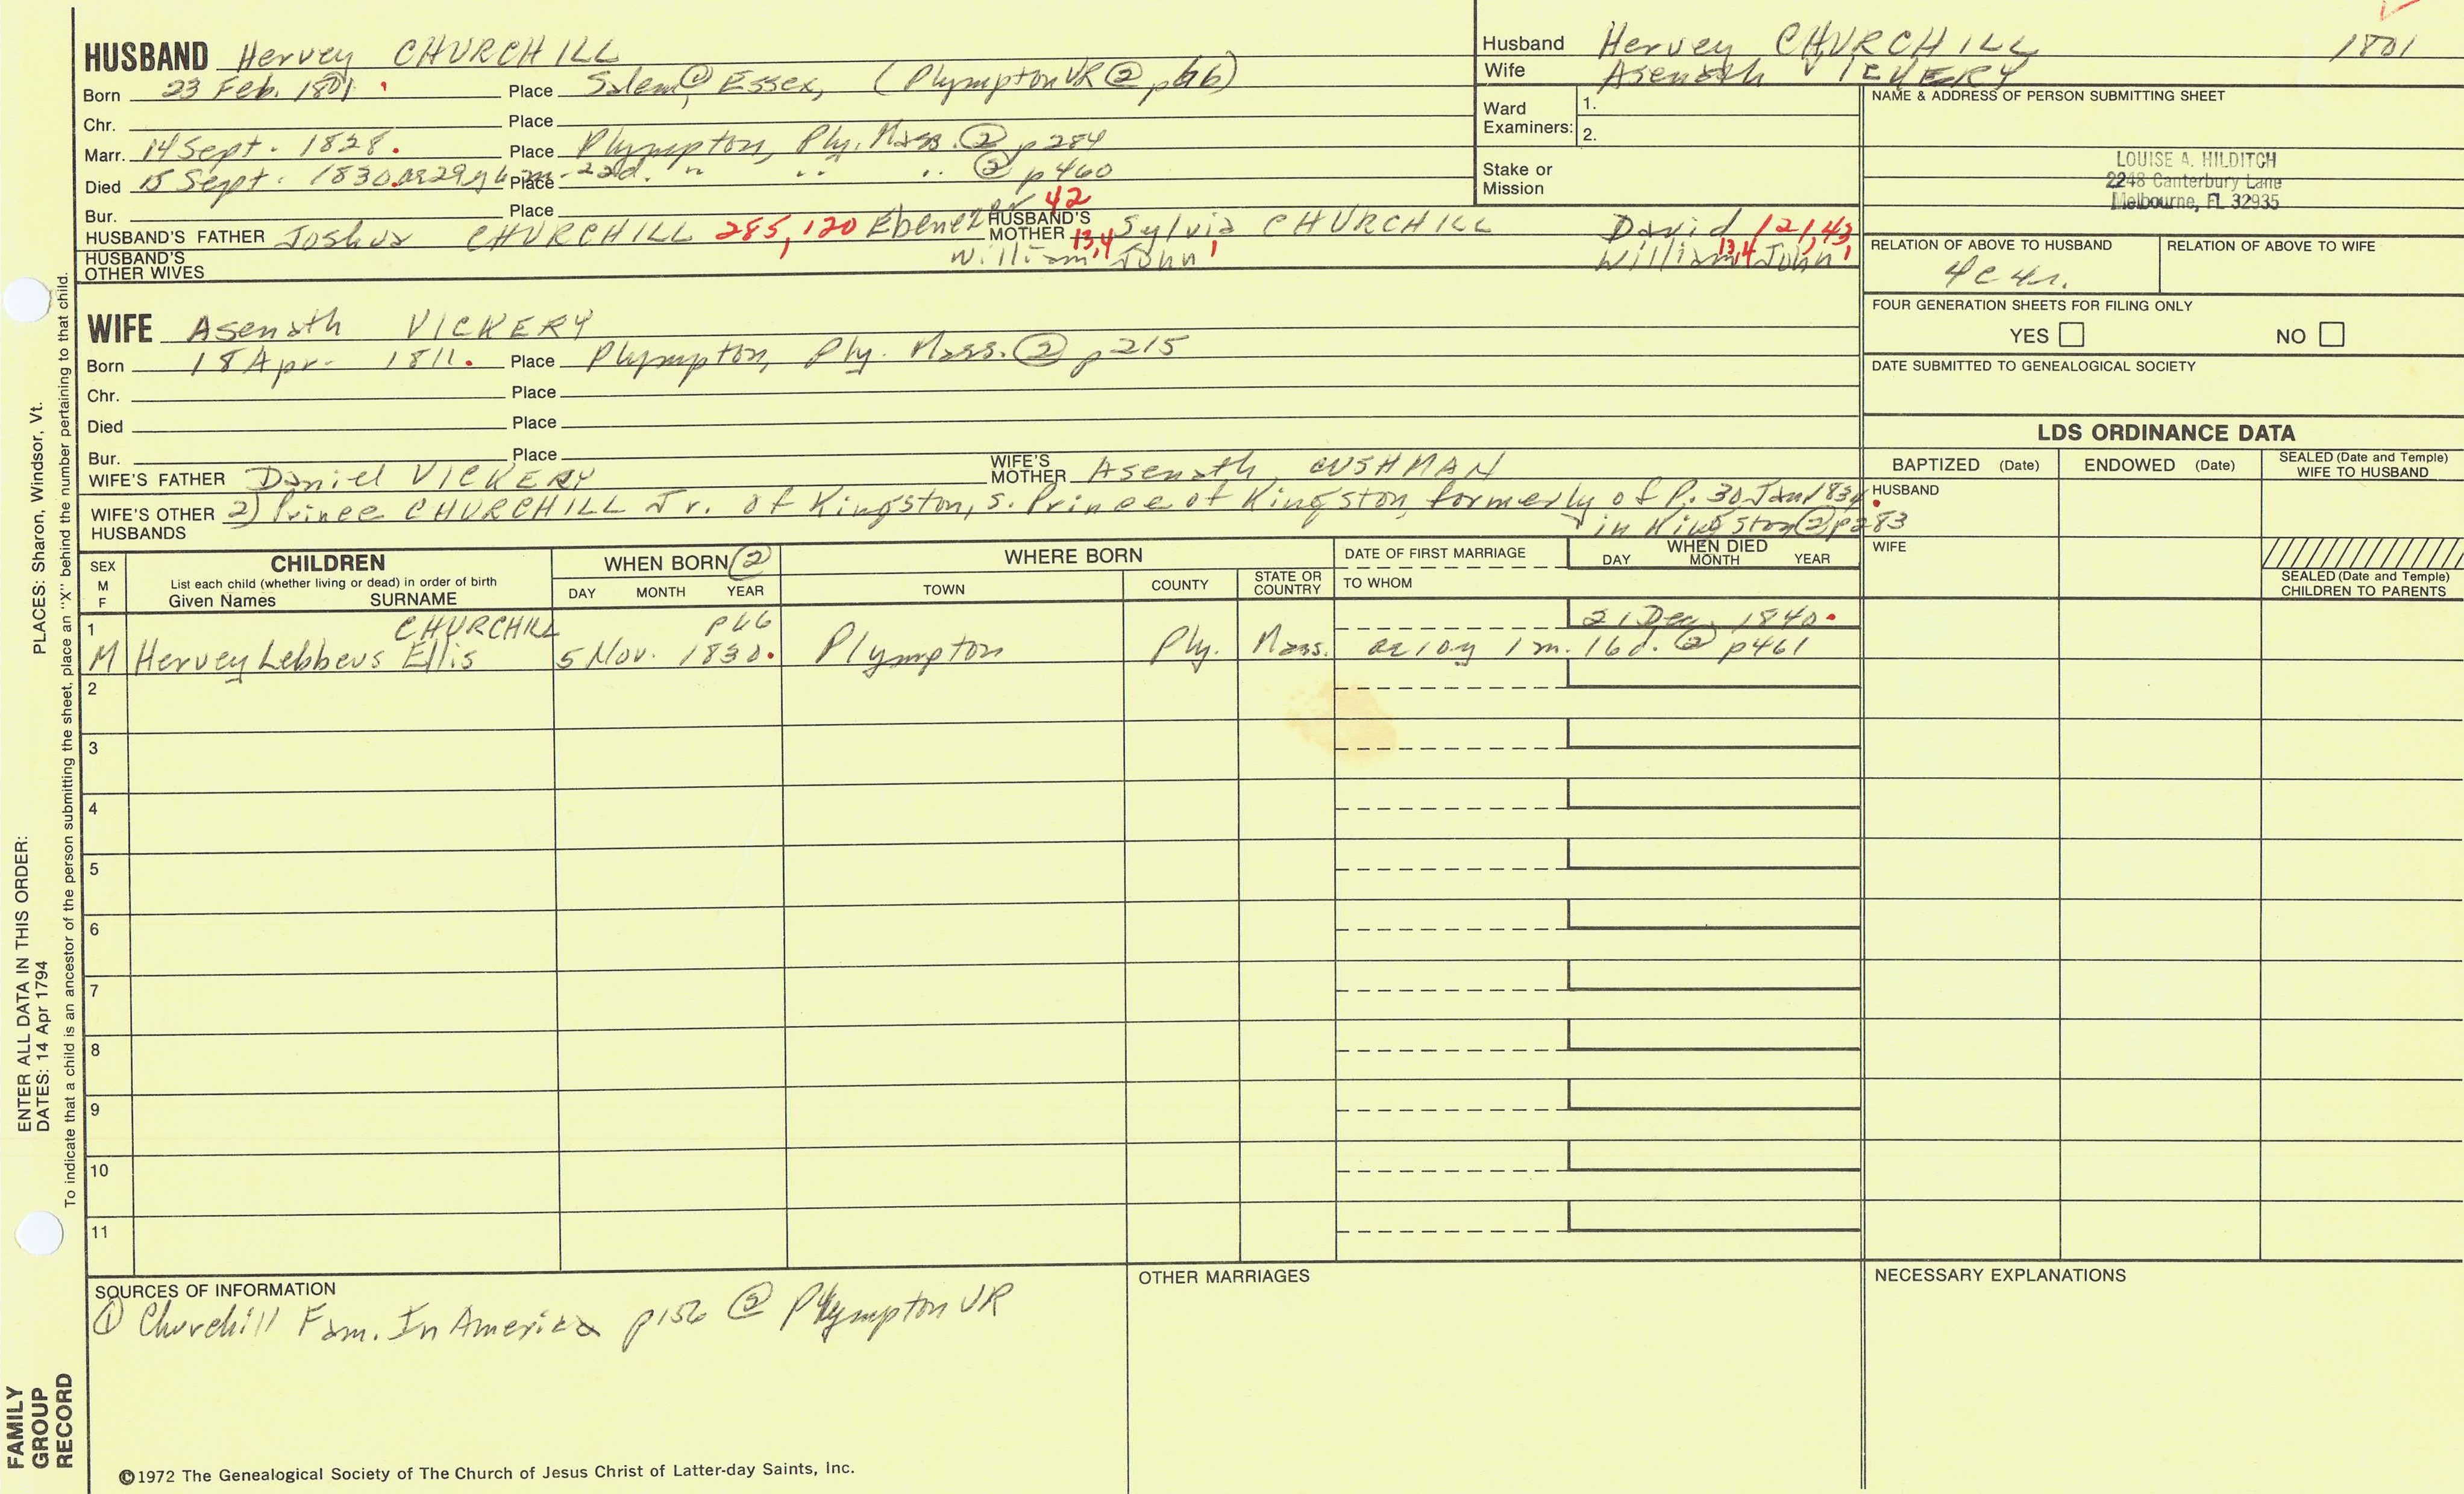 HUSBAND Hervey CHURCHILL
Born 23 Feb. 1801. Place Salem ① Essex, (Plympton VR ② p66)
Chr. Place
Marr. 14 Sept. 1828. Place Plympton, Ply. Mass. ② p284
Died 15 Sept. 1830. ae 29y 6m-22d. Place " " " ② p460
Bur. Place
HUSBAND'S FATHER Joshua CHURCHILL 285, 120 Ebenezer 42 HUSBAND'S MOTHER Sylvia CHURCHILL David 121, 43
William 13,4 John 1 William 13,4 John 1
HUSBAND'S OTHER WIVES
Husband Hervey CHURCHILL 1801
Wife Asenath VICKERY
Ward Examiners: 1.
2.
Stake or Mission
NAME & ADDRESS OF PERSON SUBMITTING SHEET
LOUISE A. HILDITCH
2248 Canterbury Lane
Melbourne, FL 32935
RELATION OF ABOVE TO HUSBAND RELATION OF ABOVE TO WIFE
4c4r.
FOUR GENERATION SHEETS FOR FILING ONLY
YES NO
DATE SUBMITTED TO GENEALOGICAL SOCIETY
WIFE Asenath VICKERY
Born 18 Apr. 1811. Place Plympton, Ply. Mass. ② p215
Chr. Place
Died Place
Bur. Place
WIFE'S FATHER Daniel VICKERY WIFE'S MOTHER Asenath CUSHMAN
WIFE'S OTHER HUSBANDS 2) Prince CHURCHILL Jr. of Kingston, s. Prince of Kingston, formerly of P. 30 Jan 1834.
in Kingston ② p283
LDS ORDINANCE DATA
BAPTIZED (Date) ENDOWED (Date) SEALED (Date and Temple) WIFE TO HUSBAND
HUSBAND
WIFE
SEALED (Date and Temple) CHILDREN TO PARENTS
SEX M F
CHILDREN
List each child (whether living or dead) in order of birth
Given Names SURNAME
WHEN BORN ②
DAY MONTH YEAR
WHERE BORN
TOWN COUNTY STATE OR COUNTRY
DATE OF FIRST MARRIAGE
TO WHOM
WHEN DIED
DAY MONTH YEAR
1 CHURCHILL p66 21 Dec. 1840.
M Hervey Lebbeus Ellis 5 Nov. 1830. Plympton Ply. Mass. ae 10y 1m. 16d. ② p461
2
3
4
5
6
7
8
9
10
11
SOURCES OF INFORMATION
① Churchill Fam. In America p156 ② Plympton VR
OTHER MARRIAGES
NECESSARY EXPLANATIONS
©1972 The Genealogical Society of The Church of Jesus Christ of Latter-day Saints, Inc.
FAMILY GROUP RECORD
ENTER ALL DATA IN THIS ORDER:
DATES: 14 Apr 1794 PLACES: Sharon, Windsor, Vt.
To indicate that a child is an ancestor of the person submitting the sheet, place an "X" behind the number pertaining to that child.